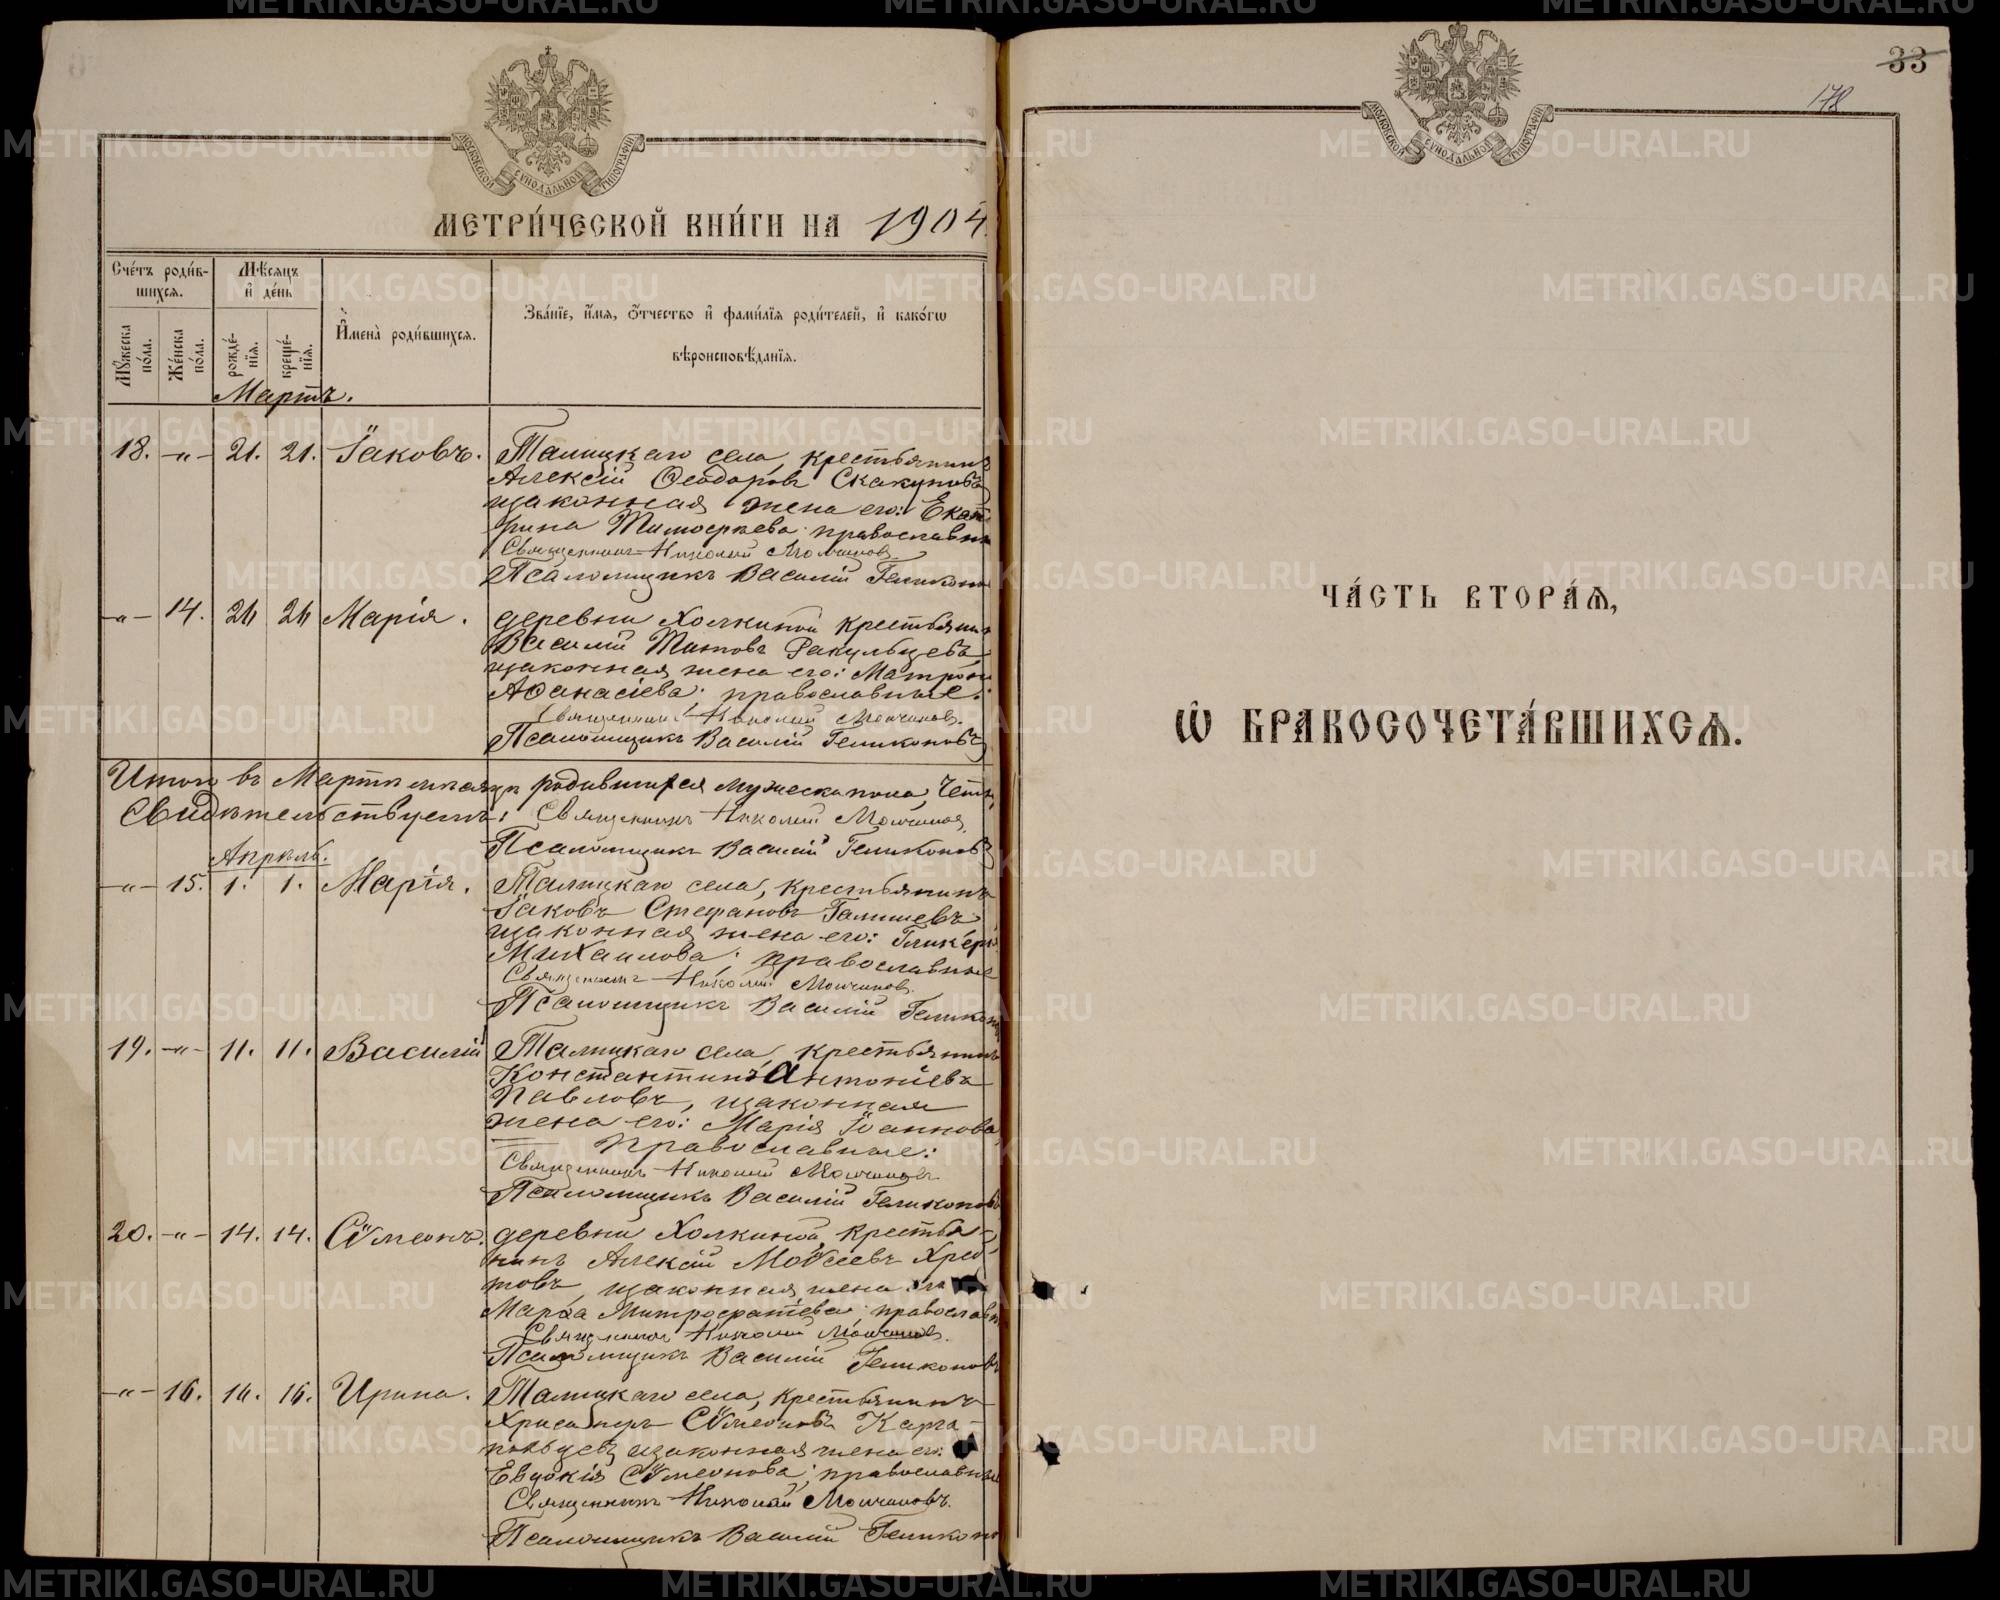 МОСКОВСКОЙ СѴНОДАЛЬНОЙ ТИПОГРАФІИ
МЕТРИ́ЧЕСКОЙ КНИ́ГИ НА 1904.
Сче́тъ роди́вшихся.
Мꙋ́жеска по́ла.
Же́нска по́ла.
Мѣ́сяцъ и де́нь
рожде́нїѧ.
креще́нїѧ.
Имена̀ роди́вшихсѧ.
Зва́нїе, и́мѧ, ѻ҆́тчество и҆ фами́лїѧ роди́телей, и҆ како́гѡ
вѣроисповѣ́данїѧ.
Мартъ.
18. -"- 21. 21. Іаковъ. Талицкаго села, крестьянинъ
Алексій Ѳеодоровъ Скакуновъ
и законная жена его: Екате
рина Тимоѳеева: православн
Священникъ Николай Молчановъ
Псаломщикъ Василій Геликоно
-"- 14. 26 26 Марія. деревни Холкиной крестьянинъ
Василій Титовъ Ракульцевъ
и законная жена его: Матрона
Аѳанасіева: православные.
Священникъ Николай Молчановъ.
Псаломщикъ Василій Геликоновъ
Итого въ Мартѣ мѣсяцѣ родившихся мужеска пола, Четы
Свидѣтельствуемъ: Священникъ Николай Молчановъ
Псаломщикъ Василій Геликоновъ
Апрѣль.
-"- 15. 1. 1. Марія. Талицкаго села, крестьянинъ
Іаковъ Стефановъ Галишевъ
и законная жена его: Гликерія
Михаилова: православные
Священникъ Николай Молчановъ.
Псаломщикъ Василій Геликоно
19. -"- 11. 11. Василій Талицкаго села, крестьянинъ
Константинъ Антоніевъ
Павловъ, и законная
жена его: Марія Іоаннова
православные:
Священникъ Николай Молчановъ
Псаломщикъ Василій Геликоновъ
20. -"- 14. 14. Сѵмеонъ. деревни Холкиной, крестья-
нинъ Алексій Моѵсеевъ Хрео-
товъ, и законная жена его
Марѳа Митрофатіева: православн
Священникъ Николай Молчановъ.
Псаломщикъ Василій Геликоновъ
-"- 16. 16. 16. Ирина. Талицкаго села, крестьянинъ
Хрисанѳъ Сѵмеоновъ Карга-
польцевъ и законная жена его:
Евдокія Сѵмеонова: православные
Священникъ Николай Молчановъ.
Псаломщикъ Василій Геликоно
МОСКОВСКОЙ СѴНОДАЛЬНОЙ ТИПОГРАФІИ
33
178
ЧА́СТЬ ВТОРА́Ѧ,
Ѡ҆ БРАКОСОЧЕТА́ВШИХСѦ.
METRIKI.GASO-URAL.RU